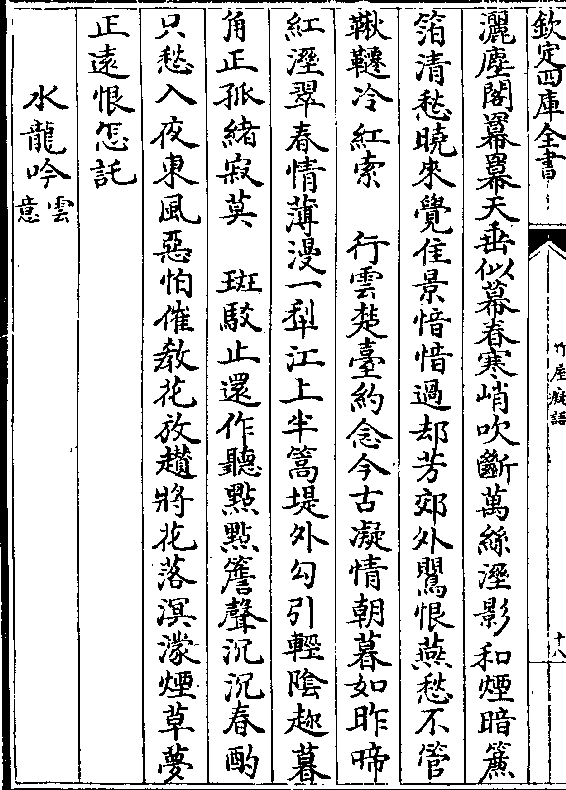 欽定四庫全書
竹屋癡語
十八
灑塵閣幂幂天垂似幕春寒峭吹斷萬絲溼影和煙暗簾
箔清愁曉來覺佳景愔愔過却芳郊外鶯恨燕愁不管
鞦韆冷紅索　行雲楚臺約念今古凝情朝暮如昨啼
紅溼翠春情薄漫一犁江上半篙堤外勾引輕陰趂暮
角正孤緒寂莫　斑駁止還作聽點點簷聲沉沉春酌
只愁入夜東風惡怕催教花放趲將花落溟濛煙草夢
正遠恨怎託
水龍吟雲意